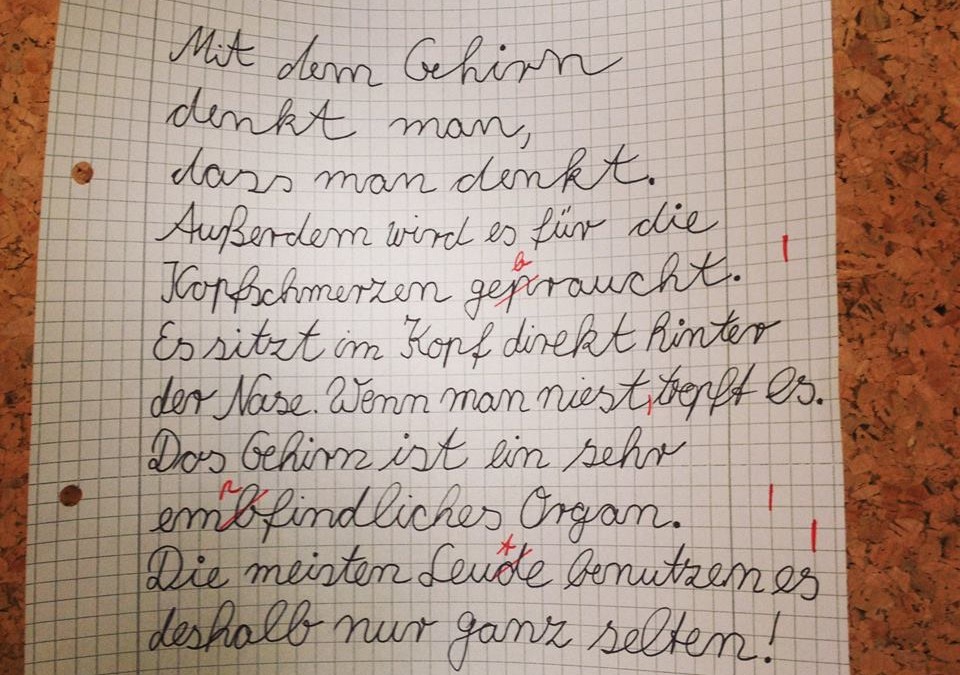 Mit dem Gehirn
denkt man,
dass man denkt.
Außerdem wird es für die
Kopfschmerzen gepraucht.
Es sitzt im Kopf direkt hinter
der Nase. Wenn man niest, tropft es.
Das Gehirn ist ein sehr
embfindliches Organ.
Die meisten Leude benutzen es
deshalb nur ganz selten!